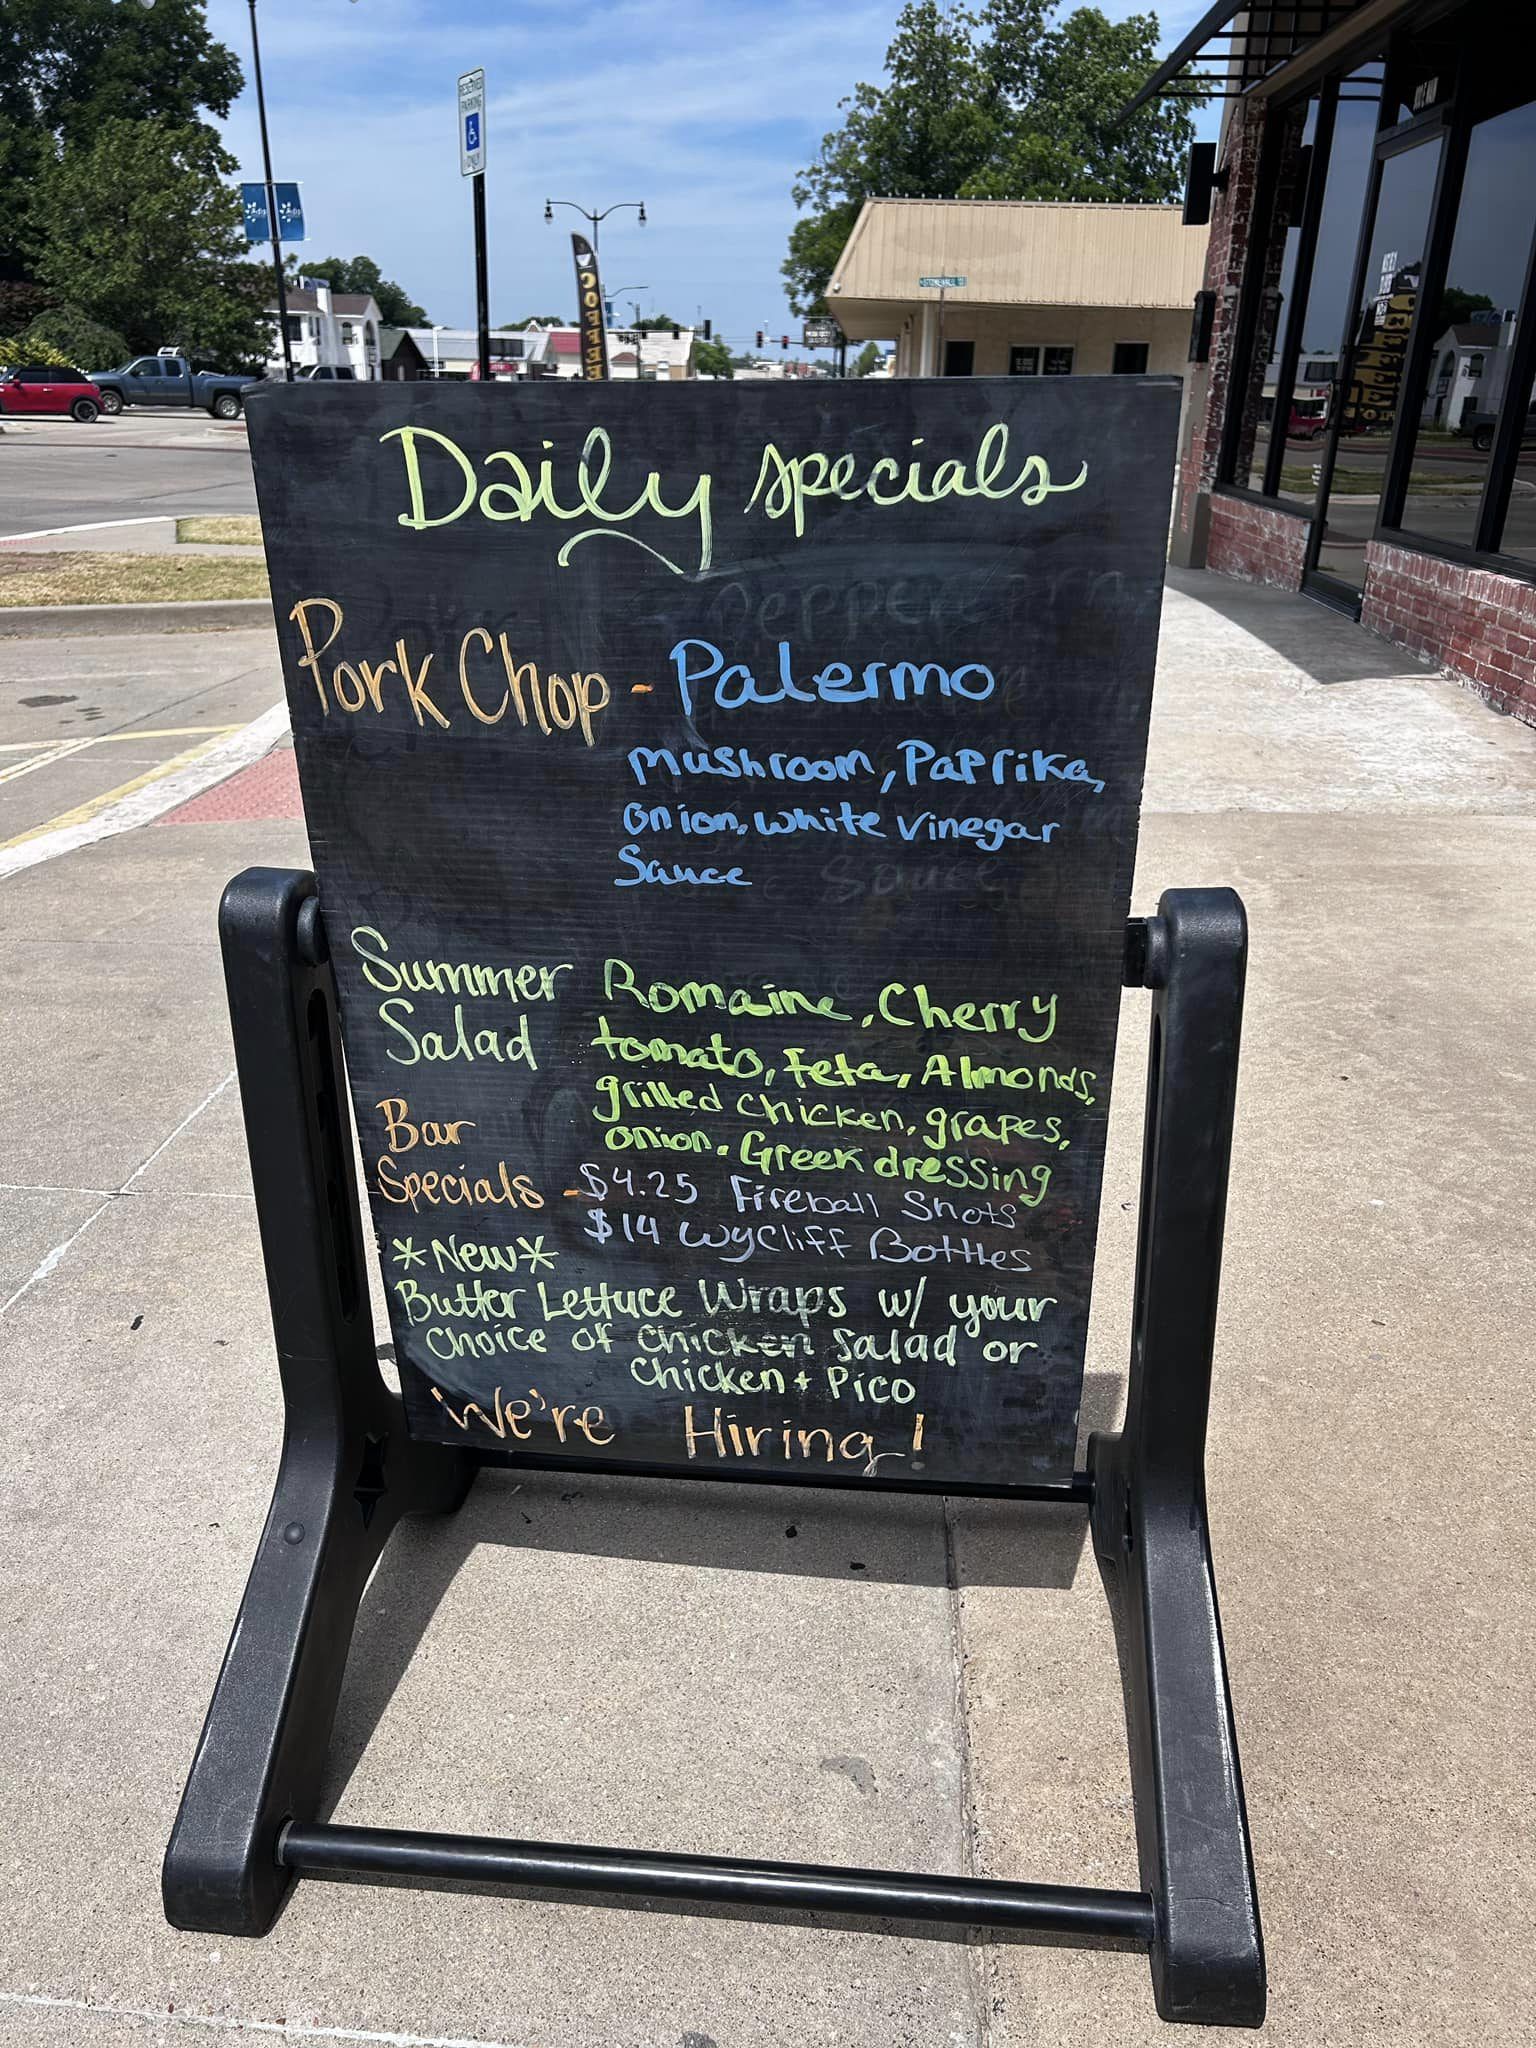 RESERVED
PARKING
ONLY
COFFEE
STONEWALL
Daily Specials
Pork Chop - Palermo
Mushroom, Paprika,
onion, white vinegar
Sauce
Summer Salad
Romaine, Cherry
tomato, Feta, Almonds,
grilled chicken, grapes,
onion. Greek dressing
Bar Specials -
$4.25 Fireball Shots
$14 Wycliff Bottles
*New*
Butter Lettuce Wraps w/ your
Choice of Chicken Salad or
Chicken + Pico
We're Hiring!